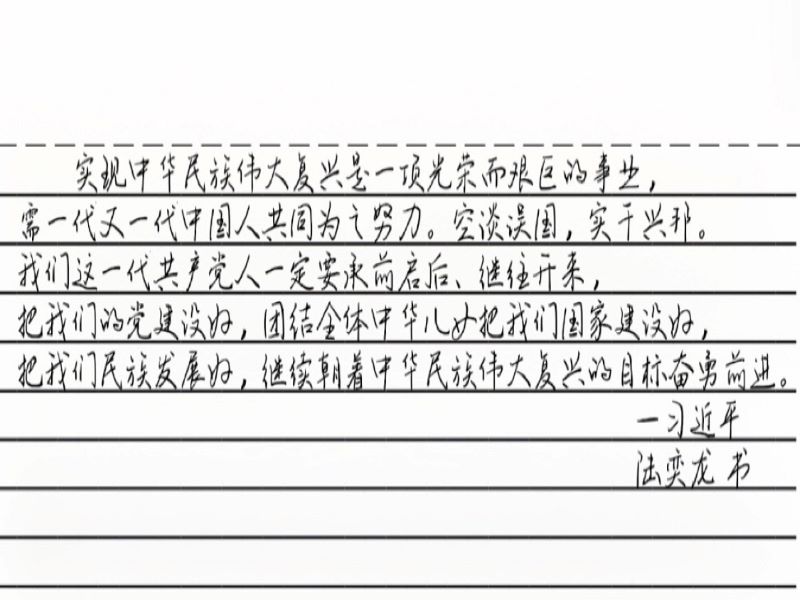 实现中华民族伟大复兴是一项光荣而艰巨的事业，
需一代又一代中国人共同为之努力。空谈误国，实干兴邦。
我们这一代共产党人一定要承前启后、继往开来，
把我们的党建设好，团结全体中华儿女把我们国家建设好，
把我们民族发展好，继续朝着中华民族伟大复兴的目标奋勇前进。
一习近平
陆奕龙 书